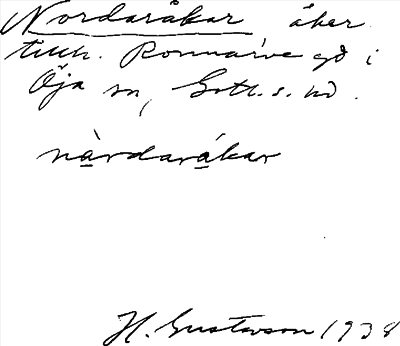 Nordaråkar åker
tillh. Ronnarve gd i
Öja sn, Gotl. s. hd.
nàrdarákar
H. Gustavson 1938